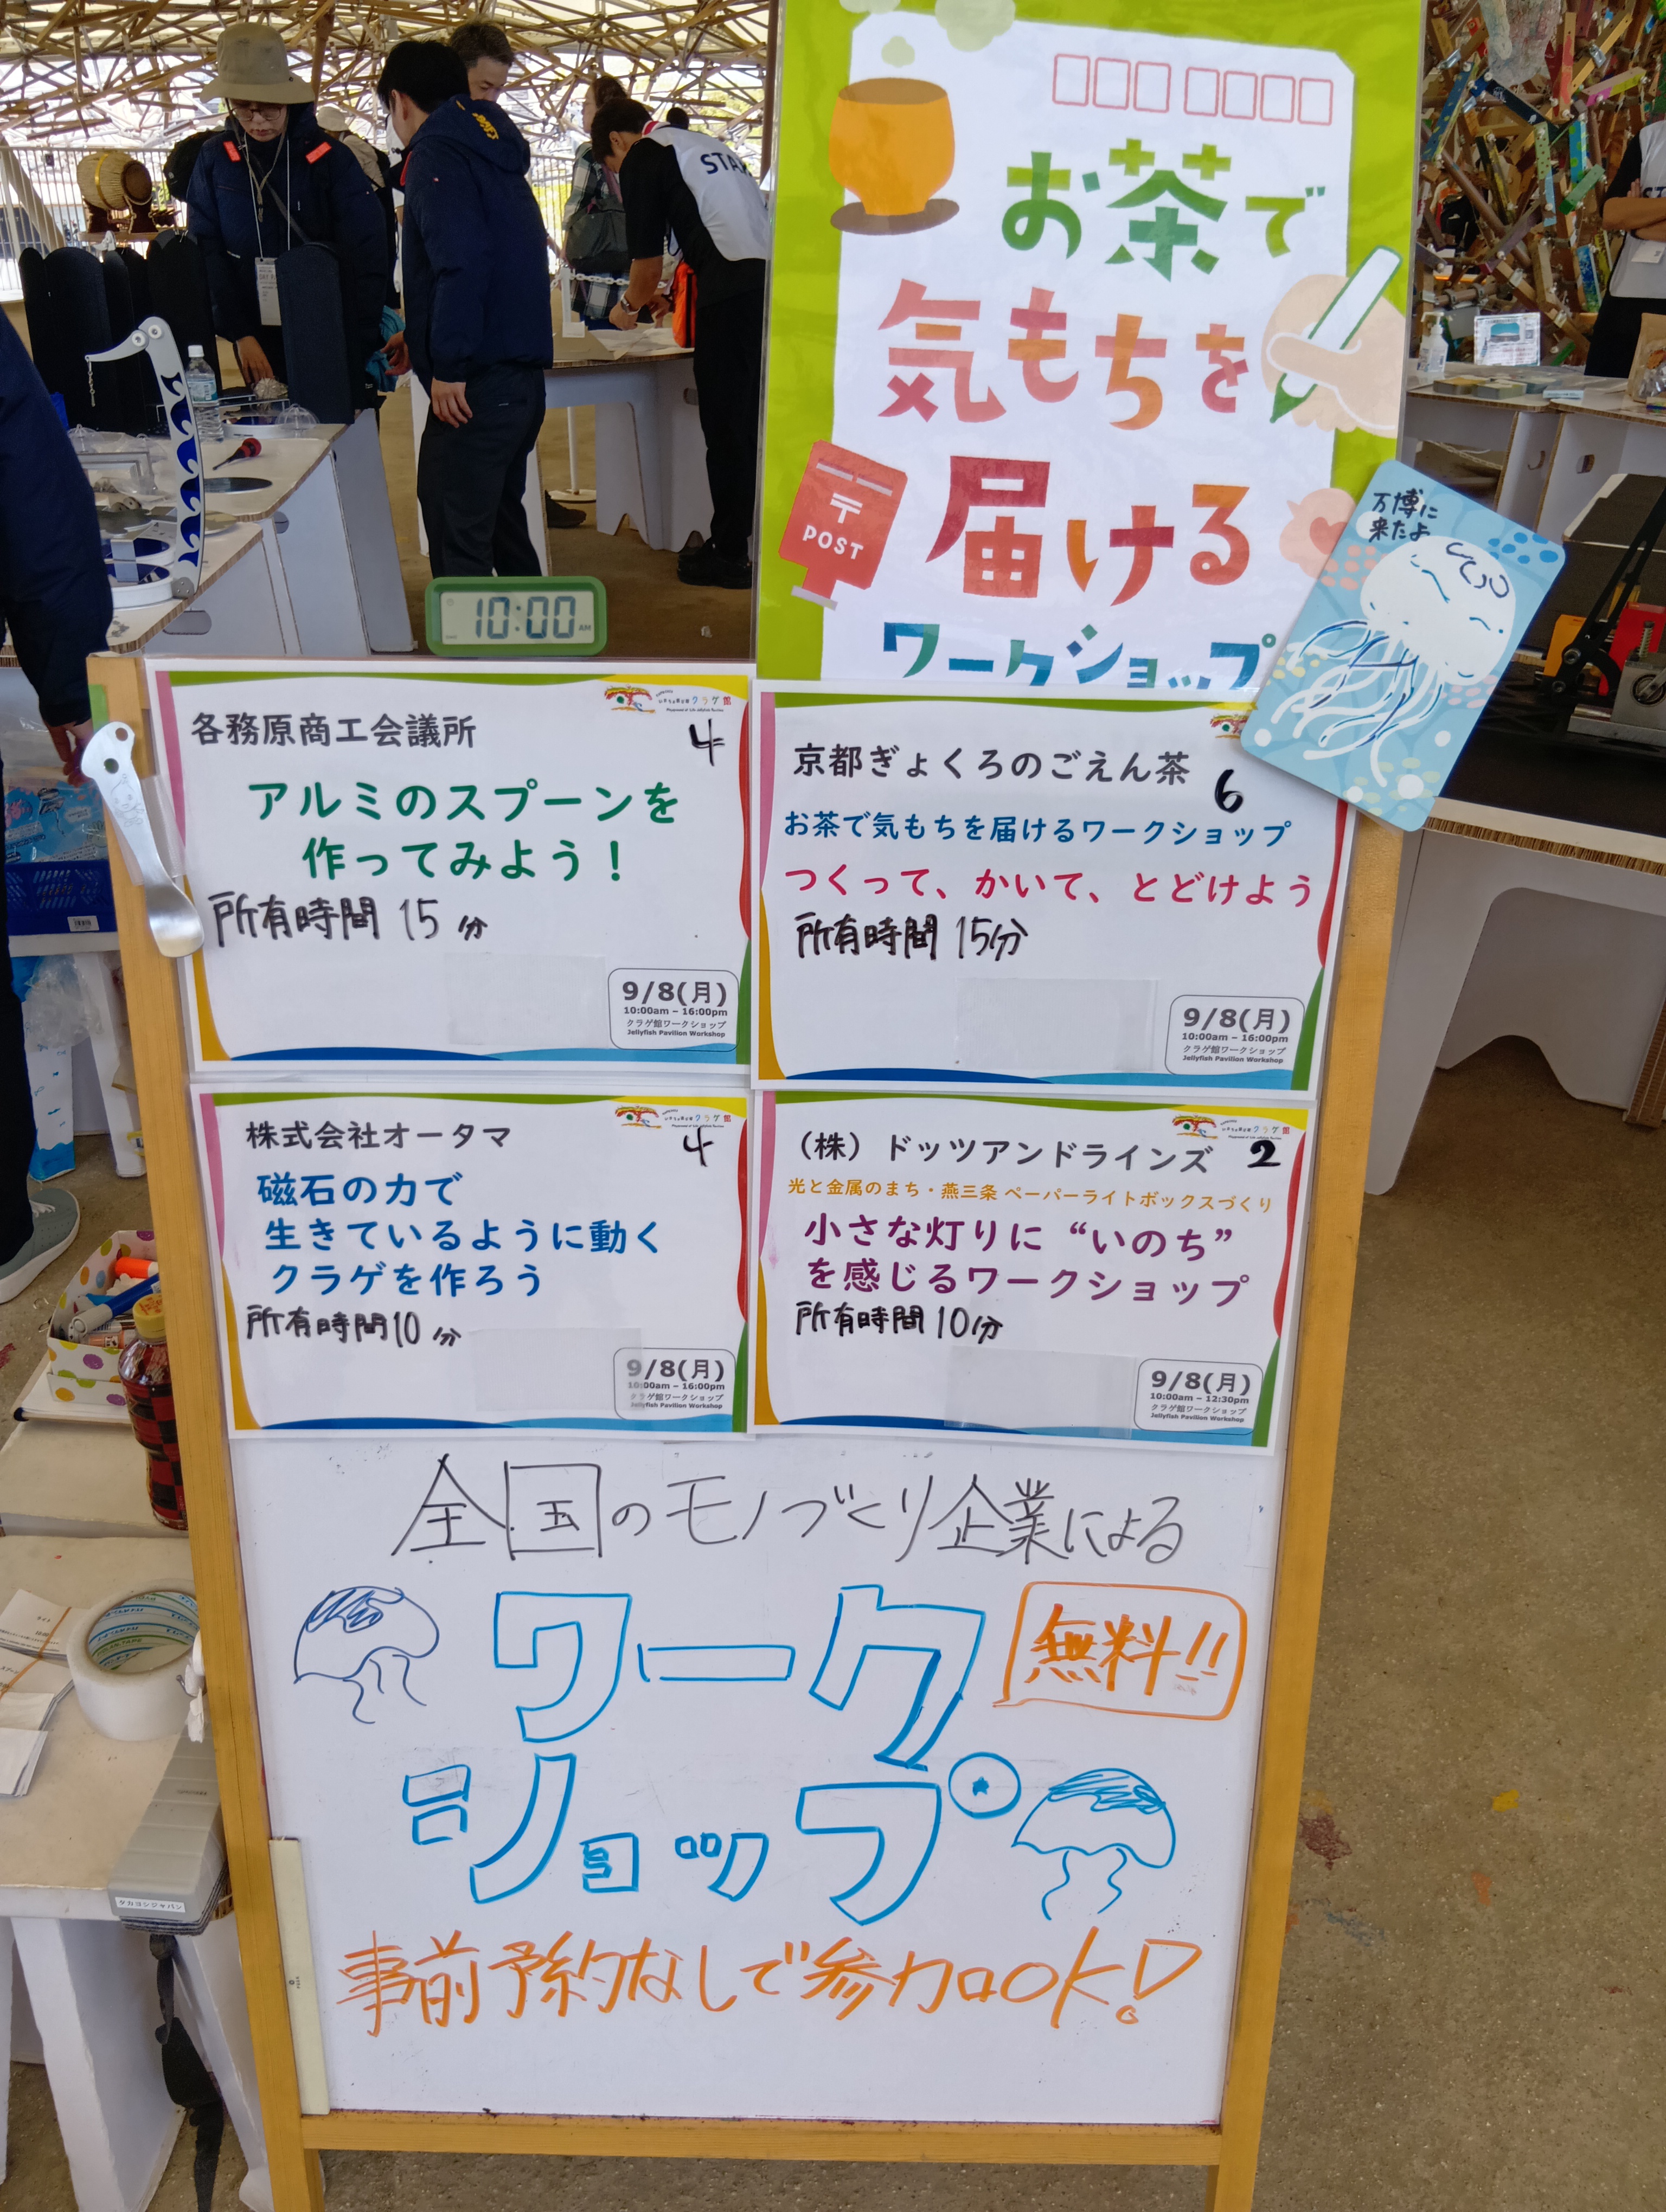 お茶で
気もちを
届ける
ワークショップ
〒
POST
万博に
来たよ
10:00
AM
各務原商工会議所
4
アルミのスプーンを
作ってみよう！
所有時間 15 分
9/8(月)
10:00am – 16:00pm
クラゲ館ワークショップ
Jellyfish Pavilion Workshop
京都ぎょくろのごえん茶
6
お茶で気もちを届けるワークショップ
つくって、かいて、とどけよう
所有時間 15分
9/8(月)
10:00am – 16:00pm
クラゲ館ワークショップ
Jellyfish Pavilion Workshop
株式会社オータマ
4
磁石の力で
生きているように動く
クラゲを作ろう
所有時間10 分
9/8(月)
10:00am – 16:00pm
クラゲ館ワークショップ
Jellyfish Pavilion Workshop
（株）ドッツアンドラインズ
2
光と金属のまち・燕三条 ペーパーライトボックスづくり
小さな灯りに “いのち”
を感じるワークショップ
所有時間10分
9/8(月)
10:00am – 12:30pm
クラゲ館ワークショップ
Jellyfish Pavilion Workshop
全国のモノづくり企業による
ワーク
無料!!
ショップ
事前予約なしで参加OK!
タカヨシジャパン